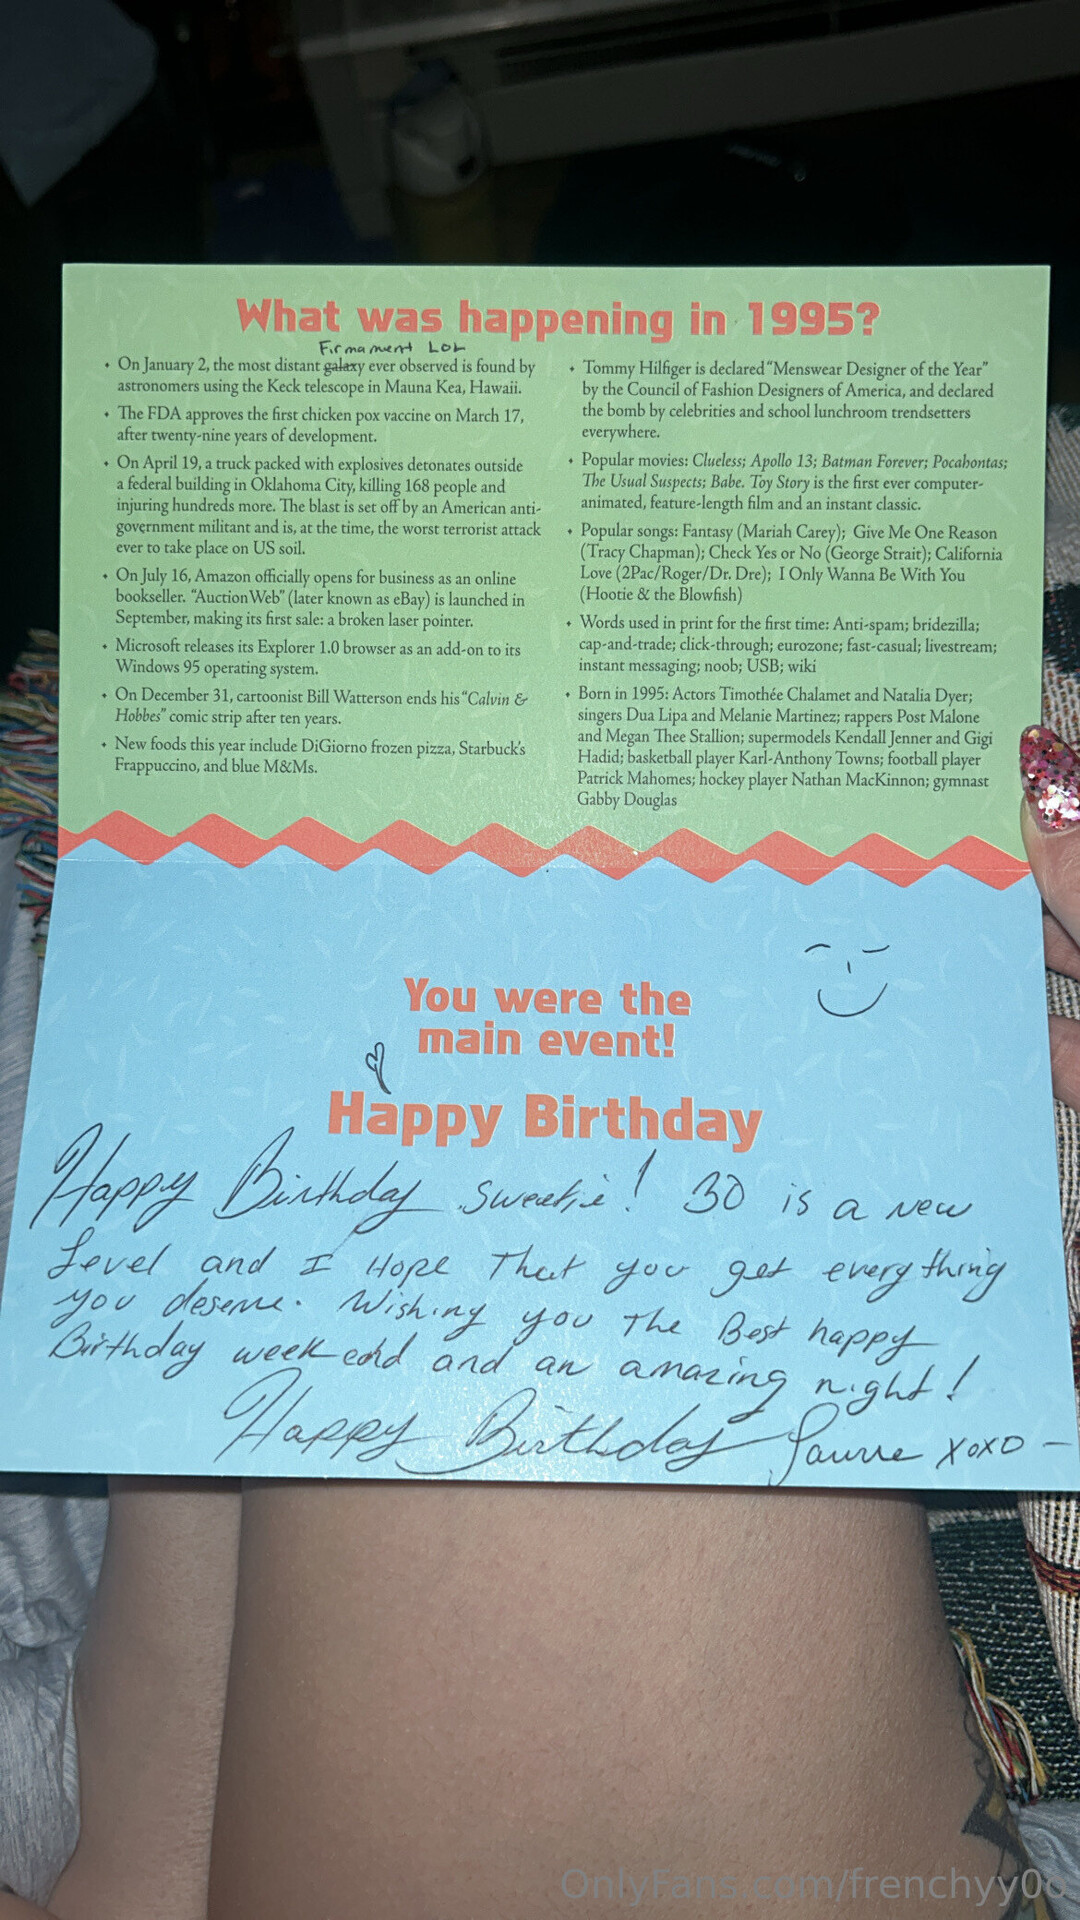 What was happening in 1995?
Firmament LOL
• On January 2, the most distant galaxy ever observed is found by
astronomers using the Keck telescope in Mauna Kea, Hawaii.
• The FDA approves the first chicken pox vaccine on March 17,
after twenty-nine years of development.
• On April 19, a truck packed with explosives detonates outside
a federal building in Oklahoma City, killing 168 people and
injuring hundreds more. The blast is set off by an American anti-
government militant and is, at the time, the worst terrorist attack
ever to take place on US soil.
• On July 16, Amazon officially opens for business as an online
bookseller. “AuctionWeb” (later known as eBay) is launched in
September, making its first sale: a broken laser pointer.
• Microsoft releases its Explorer 1.0 browser as an add-on to its
Windows 95 operating system.
• On December 31, cartoonist Bill Watterson ends his “Calvin &
Hobbes” comic strip after ten years.
• New foods this year include DiGiorno frozen pizza, Starbuck's
Frappuccino, and blue M&Ms.
• Tommy Hilfiger is declared “Menswear Designer of the Year”
by the Council of Fashion Designers of America, and declared
the bomb by celebrities and school lunchroom trendsetters
everywhere.
• Popular movies: Clueless; Apollo 13; Batman Forever; Pocahontas;
The Usual Suspects; Babe. Toy Story is the first ever computer-
animated, feature-length film and an instant classic.
• Popular songs: Fantasy (Mariah Carey); Give Me One Reason
(Tracy Chapman); Check Yes or No (George Strait); California
Love (2Pac/Roger/Dr. Dre); I Only Wanna Be With You
(Hootie & the Blowfish)
• Words used in print for the first time: Anti-spam; bridezilla;
cap-and-trade; click-through; eurozone; fast-casual; livestream;
instant messaging; noob; USB; wiki
• Born in 1995: Actors Timothée Chalamet and Natalia Dyer;
singers Dua Lipa and Melanie Martinez; rappers Post Malone
and Megan Thee Stallion; supermodels Kendall Jenner and Gigi
Hadid; basketball player Karl-Anthony Towns; football player
Patrick Mahomes; hockey player Nathan MacKinnon; gymnast
Gabby Douglas
You were the
main event!
Happy Birthday
Happy Birthday Sweetie! 30 is a new
Level and I Hope That you get everything
you deserve. Wishing you The Best happy
Birthday weekend and an amazing night!
Happy Birthday XOXO –
OnlyFans.com/frenchyy0o